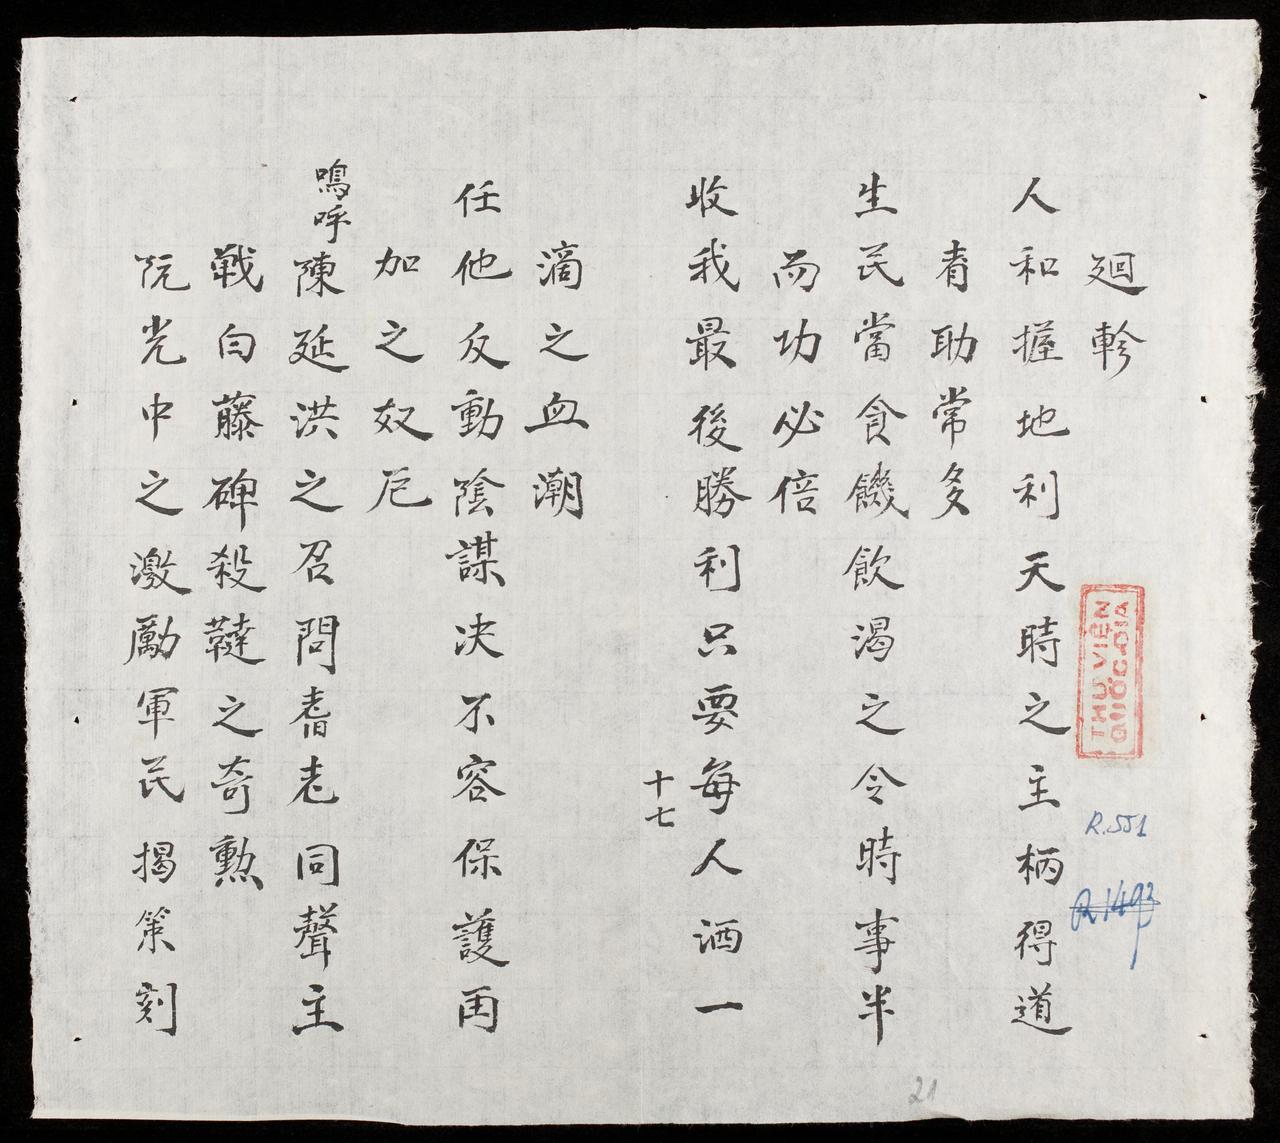 廻軫
人和握地利天時之主柄得道
者助常多
生民當食饑飲渴之令時事半
而功必倍
收我最後勝利只要每人洒一
十七
滴之血潮
任他反動陰謀決不容保護再
加之奴厄
嗚呼陳延洪之召問耆老同聲主
戦白藤碑殺韃之奇勲
阮光中之激勵軍民揭策刻
THƯ VIỆN
QUỐC GIA
R.551
R.1493
21